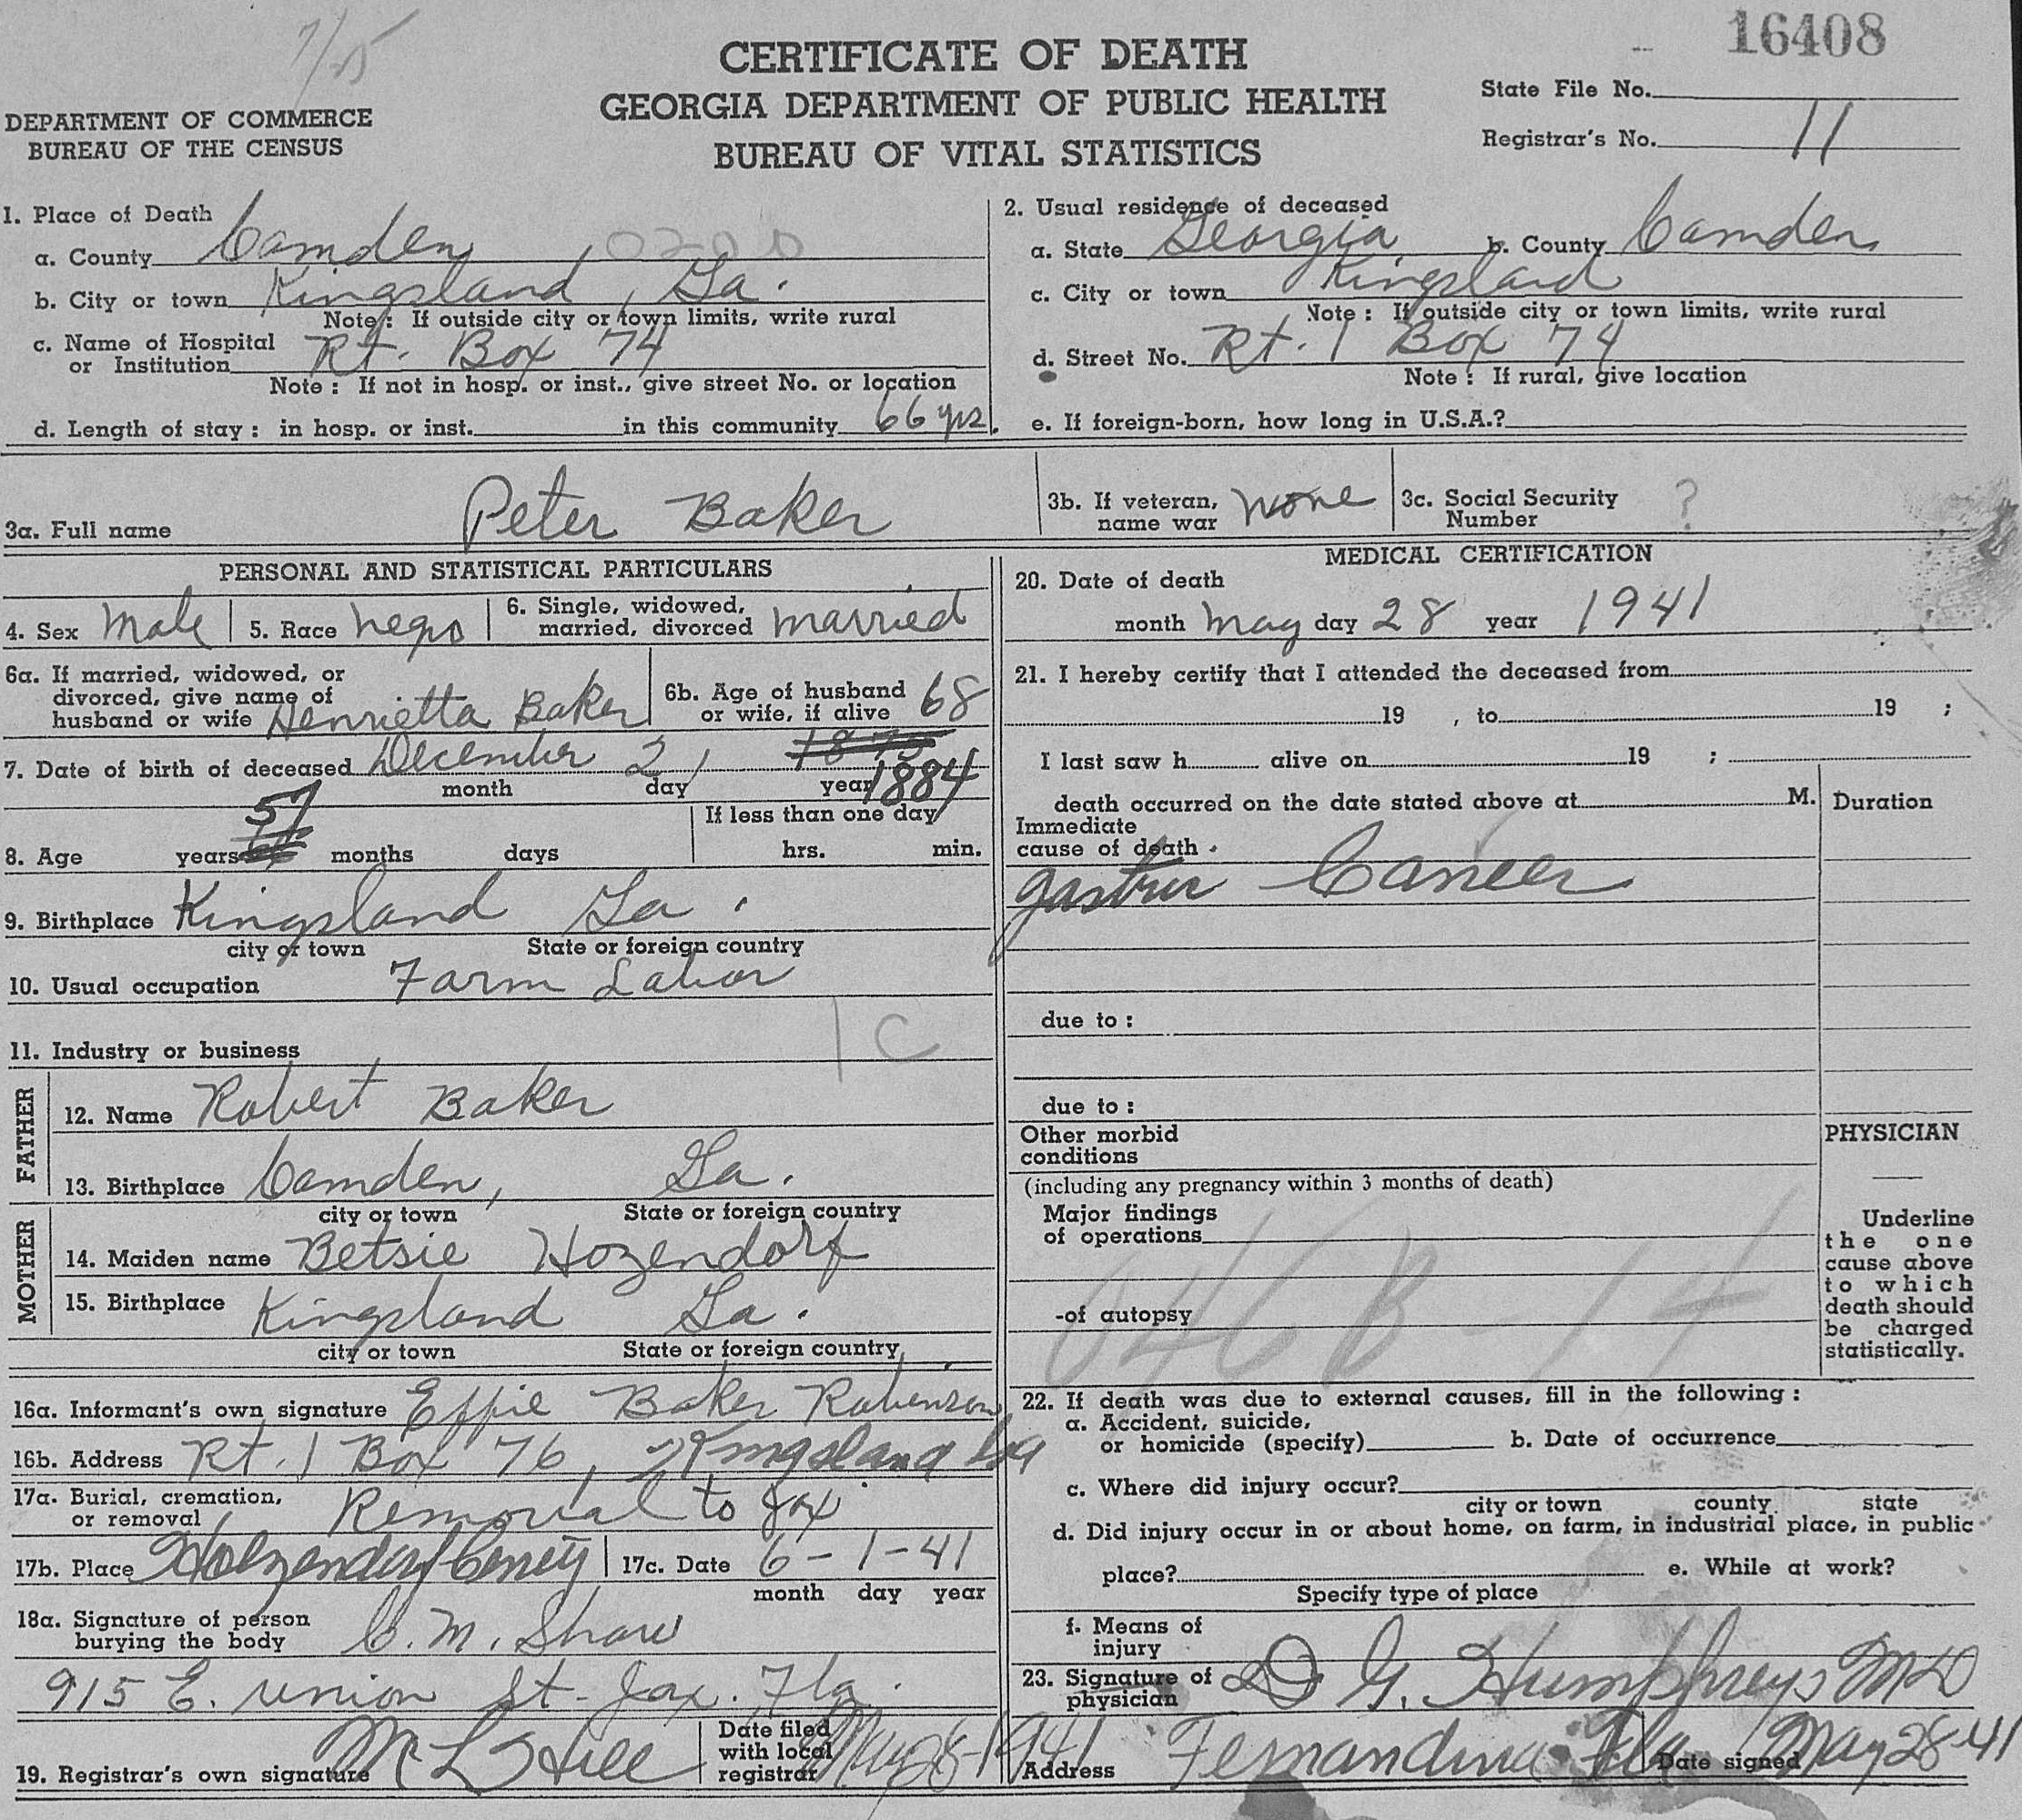 7/15
16408
CERTIFICATE OF DEATH
GEORGIA DEPARTMENT OF PUBLIC HEALTH
BUREAU OF VITAL STATISTICS
DEPARTMENT OF COMMERCE
BUREAU OF THE CENSUS
State File No.
Registrar's No. 11
1. Place of Death
a. County Camden 0200
b. City or town Kingsland, Ga.
Note: If outside city or town limits, write rural
c. Name of Hospital
or Institution Rt. Box 74
Note: If not in hosp. or inst., give street No. or location
d. Length of stay: in hosp. or inst. in this community 66 yrs.
2. Usual residence of deceased
a. State Georgia b. County Camden
c. City or town Kingsland
Note: If outside city or town limits, write rural
d. Street No. Rt. 1 Box 74
Note: If rural, give location
e. If foreign-born, how long in U.S.A.?
3a. Full name Peter Baker
3b. If veteran,
name war none
3c. Social Security
Number ?
PERSONAL AND STATISTICAL PARTICULARS
4. Sex Male 5. Race negro 6. Single, widowed,
married, divorced married
6a. If married, widowed, or
divorced, give name of
husband or wife Henrietta Baker
6b. Age of husband
or wife, if alive 68
7. Date of birth of deceased December 2, 1875
month day year 1884
57
8. Age years months days
If less than one day
hrs. min.
9. Birthplace Kingsland Ga.
city or town State or foreign country
10. Usual occupation Farm Labor
1 C
11. Industry or business
FATHER
12. Name Robert Baker
13. Birthplace Camden, Ga.
city or town State or foreign country
MOTHER
14. Maiden name Betsie Hozendorf
15. Birthplace Kingsland Ga.
city or town State or foreign country
16a. Informant's own signature Effie Baker Robenson
16b. Address Rt. 1 Box 76, Kingsland Ga
17a. Burial, cremation,
or removal Removal to Jax
17b. Place Holzendorf Cemety 17c. Date 6-1-41
month day year
18a. Signature of person
burying the body C. M. Shaw
915 E. Union St. Jax. Fla.
19. Registrar's own signature M L Hill
Date filed
with local
registrar May 28-1941
MEDICAL CERTIFICATION
20. Date of death
month May day 28 year 1941
21. I hereby certify that I attended the deceased from
19 , to 19 ;
I last saw h alive on 19 ;
death occurred on the date stated above at M.
Duration
Immediate
cause of death.
gastric Cancer
due to:
due to:
Other morbid
conditions
(including any pregnancy within 3 months of death)
Major findings
of operations
-of autopsy
046B-14
PHYSICIAN
Underline
the one
cause above
to which
death should
be charged
statistically.
22. If death was due to external causes, fill in the following:
a. Accident, suicide,
or homicide (specify) b. Date of occurrence
c. Where did injury occur?
city or town county state
d. Did injury occur in or about home, on farm, in industrial place, in public
place? e. While at work?
Specify type of place
f. Means of
injury
23. Signature of
physician D G. Humphreys MD
Address Fernandina Fla Date signed May 28-41